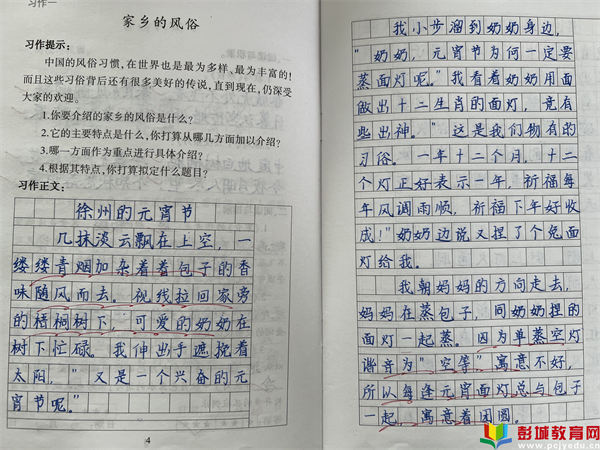 习作一
家乡的风俗
习作提示:
中国的风俗习惯,在世界也是最为多样、最为丰富的!
而且这些习俗背后还有很多美好的传说,直到现在,仍深受
大家的欢迎。
1.你要介绍的家乡的风俗是什么?
2.它的主要特点是什么,你打算从哪几方面加以介绍?
3.哪一方面作为重点进行具体介绍?
4.根据其特点,你打算拟定什么题目?
习作正文:
徐州的元宵节
几抹淡云飘在上空,一
缕缕青烟加杂着着包子的香
味随风而去。视线拉回家旁
的梧桐树下,可爱的奶奶在
树下忙碌。我伸出手遮挽着
太阳,"又是一个兴奋的元
宵节呢。"
4
我小步溜到奶奶身边,
"奶奶,元宵节为何一定要
蒸面灯呢。"我看着奶奶用面
做出十二生肖的面灯,竟有
些出神。"这是我们物有的
习俗。一年十二个月,十二
个灯正好表示一年,祈福每
年风调雨顺,祈福下年好收
成!"奶奶边说又捏了个兔面
灯给我。
我朝妈妈的方向走去,
妈妈在蒸包子,同奶奶捏的
面灯一起蒸。因为单蒸空灯
谐音为"空等"寓意不好,
所以每逢元宵面灯总与包子
一起,寓意着团圆
彭城教育网
www.pcjyedu.cn